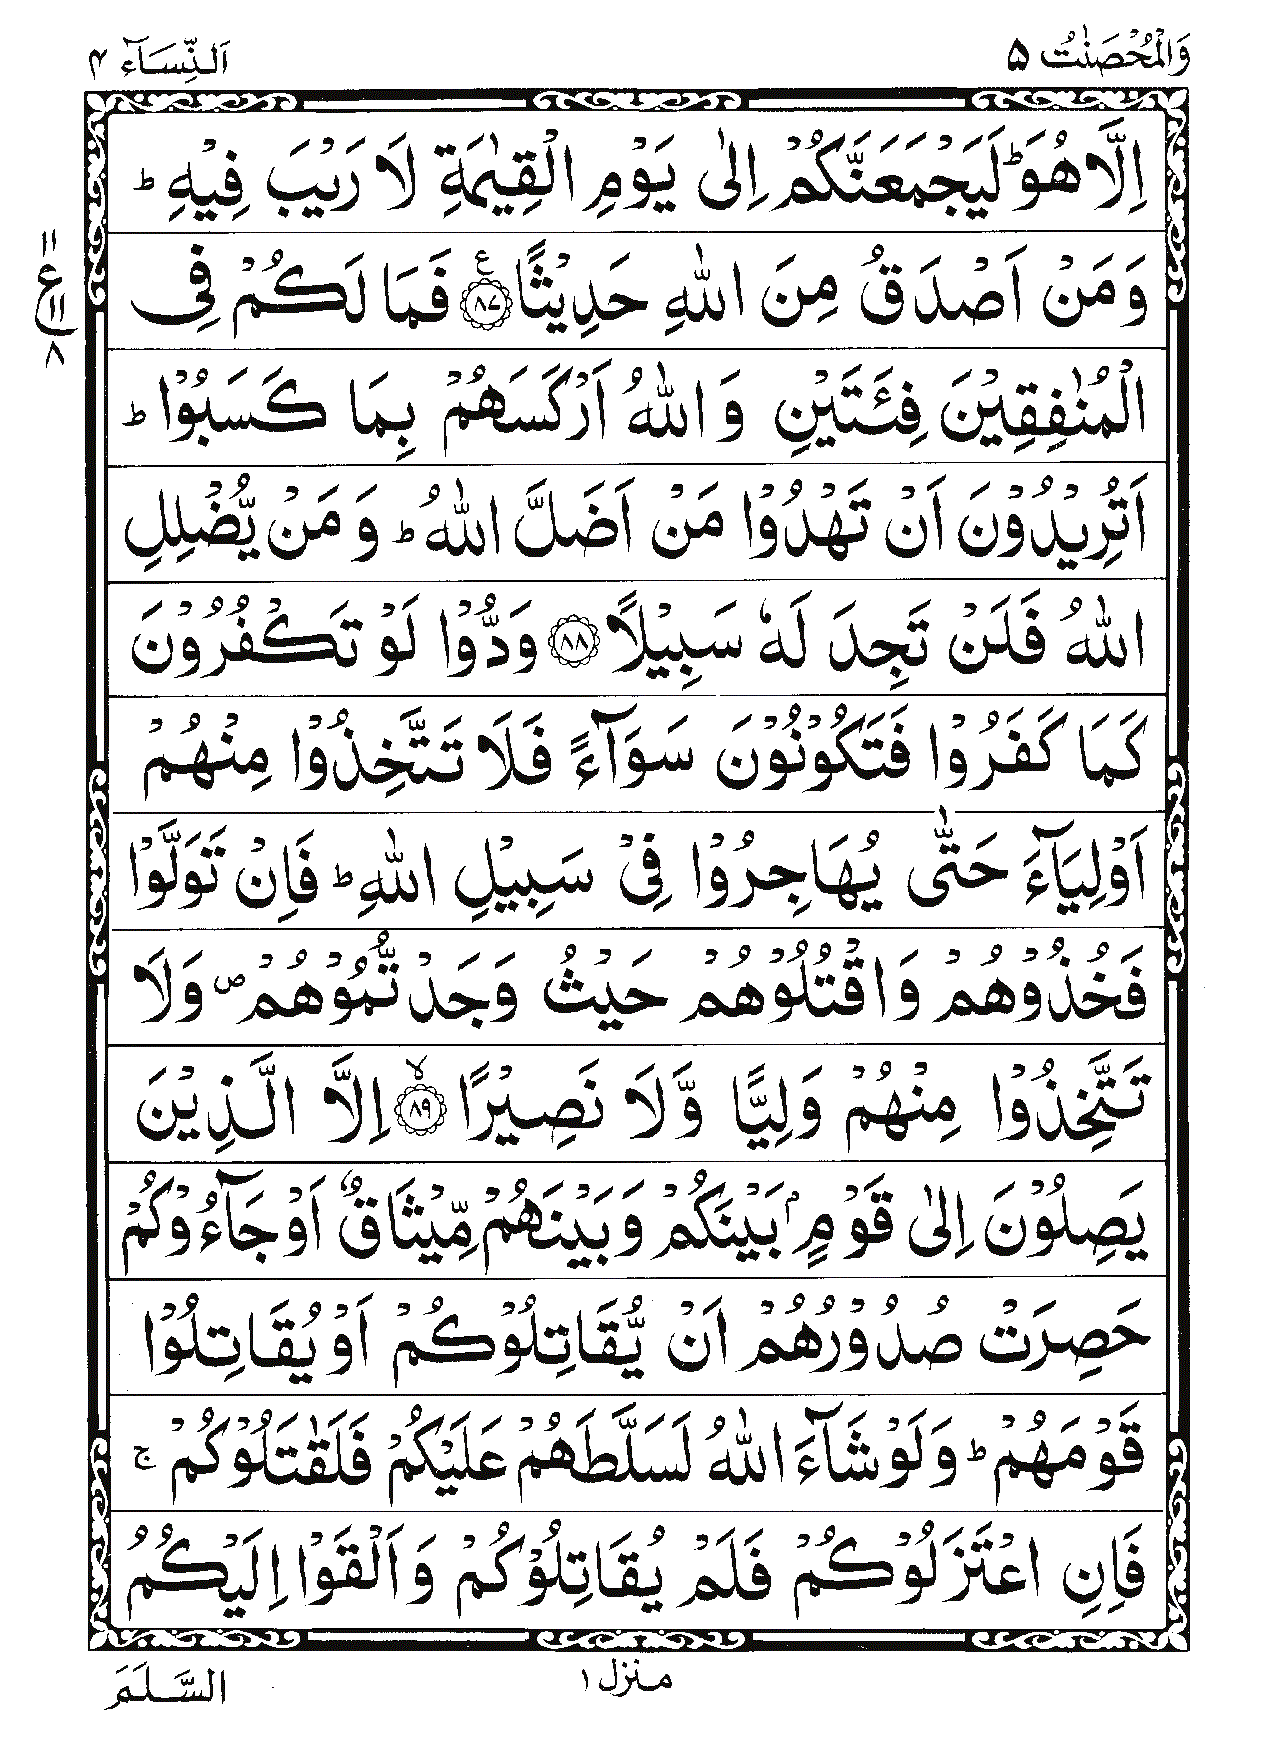 وَالْمُحْصَنٰتُ ۵
اَلنِّسَآء ۴
اِلَّا هُوَ ؕ لَيَجْمَعَنَّكُمْ اِلٰى يَوْمِ الْقِيٰمَةِ لَا رَيْبَ فِيْهِ ؕ
وَمَنْ اَصْدَقُ مِنَ اللّٰهِ حَدِيْثًا ﴿۸۷﴾ ع فَمَا لَكُمْ فِى
۱۱
ع
۱۱
۸
الْمُنٰفِقِيْنَ فِئَتَيْنِ وَاللّٰهُ اَرْكَسَهُمْ بِمَا كَسَبُوْا ؕ
اَتُرِيْدُوْنَ اَنْ تَهْدُوْا مَنْ اَضَلَّ اللّٰهُ ؕ وَمَنْ يُّضْلِلِ
اللّٰهُ فَلَنْ تَجِدَ لَهٗ سَبِيْلًا ﴿۸۸﴾ وَدُّوْا لَوْ تَكْفُرُوْنَ
كَمَا كَفَرُوْا فَتَكُوْنُوْنَ سَوَآءً فَلَا تَتَّخِذُوْا مِنْهُمْ
اَوْلِيَآءَ حَتّٰى يُهَاجِرُوْا فِىْ سَبِيْلِ اللّٰهِ ؕ فَاِنْ تَوَلَّوْا
فَخُذُوْهُمْ وَاقْتُلُوْهُمْ حَيْثُ وَجَدْتُّمُوْهُمْ ص وَلَا
تَتَّخِذُوْا مِنْهُمْ وَلِيًّا وَّلَا نَصِيْرًا ﴿۸۹﴾ ۙ اِلَّا الَّذِيْنَ
يَصِلُوْنَ اِلٰى قَوْمٍۢ بَيْنَكُمْ وَبَيْنَهُمْ مِّيْثَاقٌ اَوْ جَآءُوْكُمْ
حَصِرَتْ صُدُوْرُهُمْ اَنْ يُّقَاتِلُوْكُمْ اَوْ يُقَاتِلُوْا
قَوْمَهُمْ ؕ وَلَوْ شَآءَ اللّٰهُ لَسَلَّطَهُمْ عَلَيْكُمْ فَلَقٰتَلُوْكُمْ ۚ
فَاِنِ اعْتَزَلُوْكُمْ فَلَمْ يُقَاتِلُوْكُمْ وَاَلْقَوْا اِلَيْكُمُ
منزل ۱
السَّلَمَ